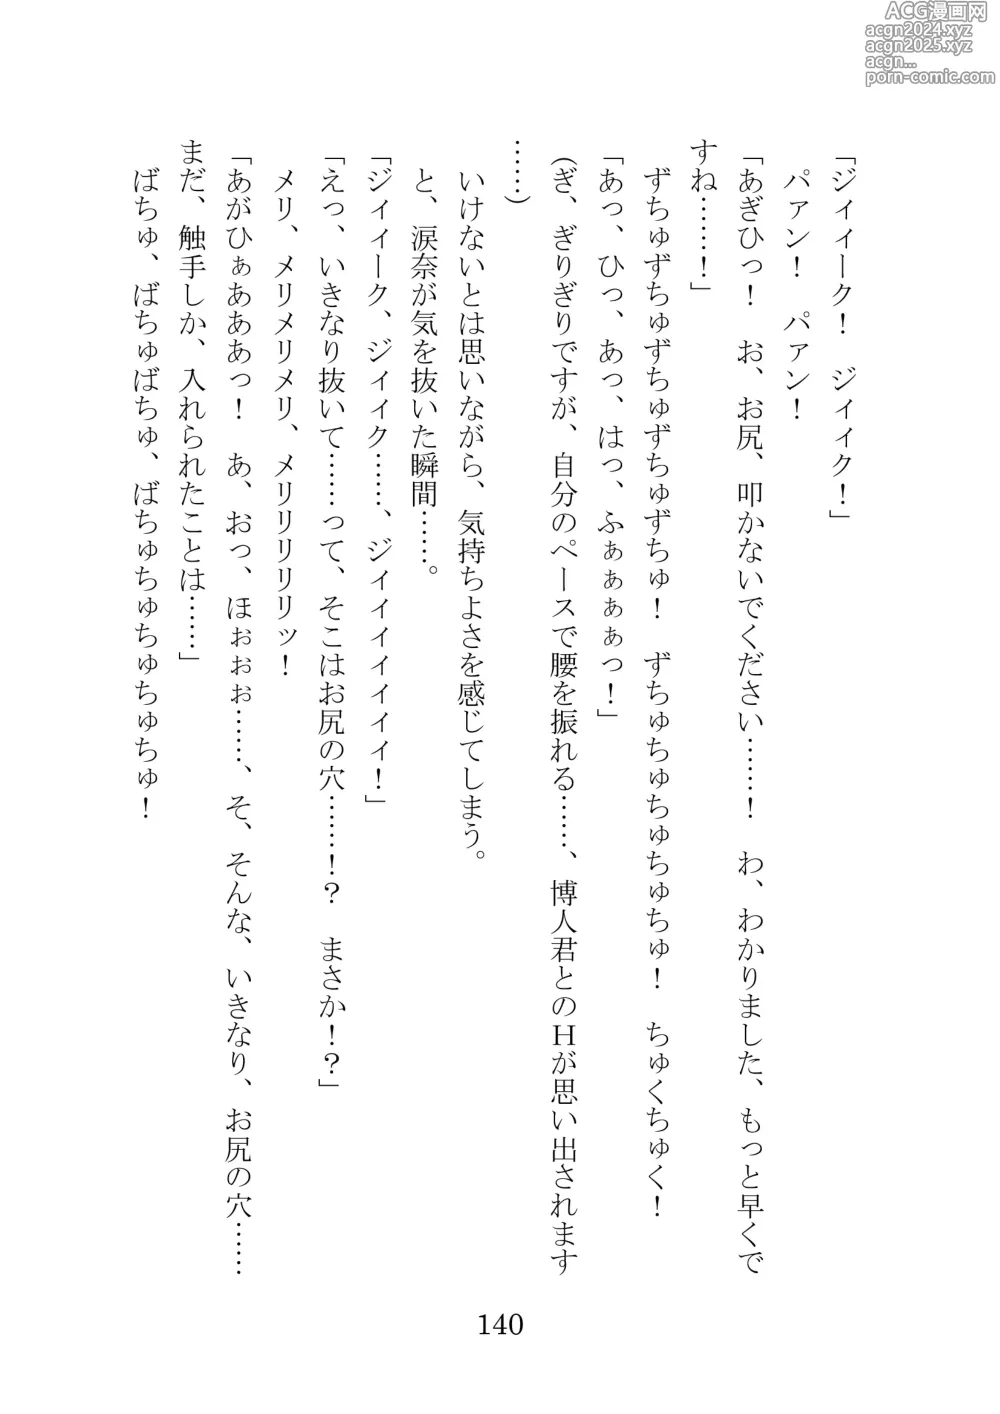 ACG漫画网
acgn2024.xyz
acgn2025.xyz
acgn...
porn-comic.com
「ジィィーク！　ジィィク！」
パァン！　パァン！
「あぎひっ！　お、お尻、叩かないでください……！　わ、わかりました、もっと早くで
すね……！」
ずちゅずちゅずちゅずちゅずちゅ！　ずちゅちゅちゅちゅちゅちゅ！　ちゅくちゅく！
「あっ、ひっ、あっ、はっ、ふぁぁぁぁっ！」
（ぎ、ぎりぎりですが、自分のペースで腰を振れる……、博人君とのＨが思い出されます
……）
いけないとは思いながら、気持ちよさを感じてしまう。
と、涙奈が気を抜いた瞬間……。
「ジィィーク、ジィィク……、ジィィィィィィ！」
「えっ、いきなり抜いて……って、そこはお尻の穴……！？　まさか！？」
メリ、メリメリメリ、メリリリリリッ！
「あがひぁあああっ！　あ、おっ、ほぉぉぉ……、そ、そんな、いきなり、お尻の穴……
まだ、触手しか、入れられたことは……」
ばちゅ、ばちゅばちゅ、ばちゅちゅちゅちゅちゅ！
140